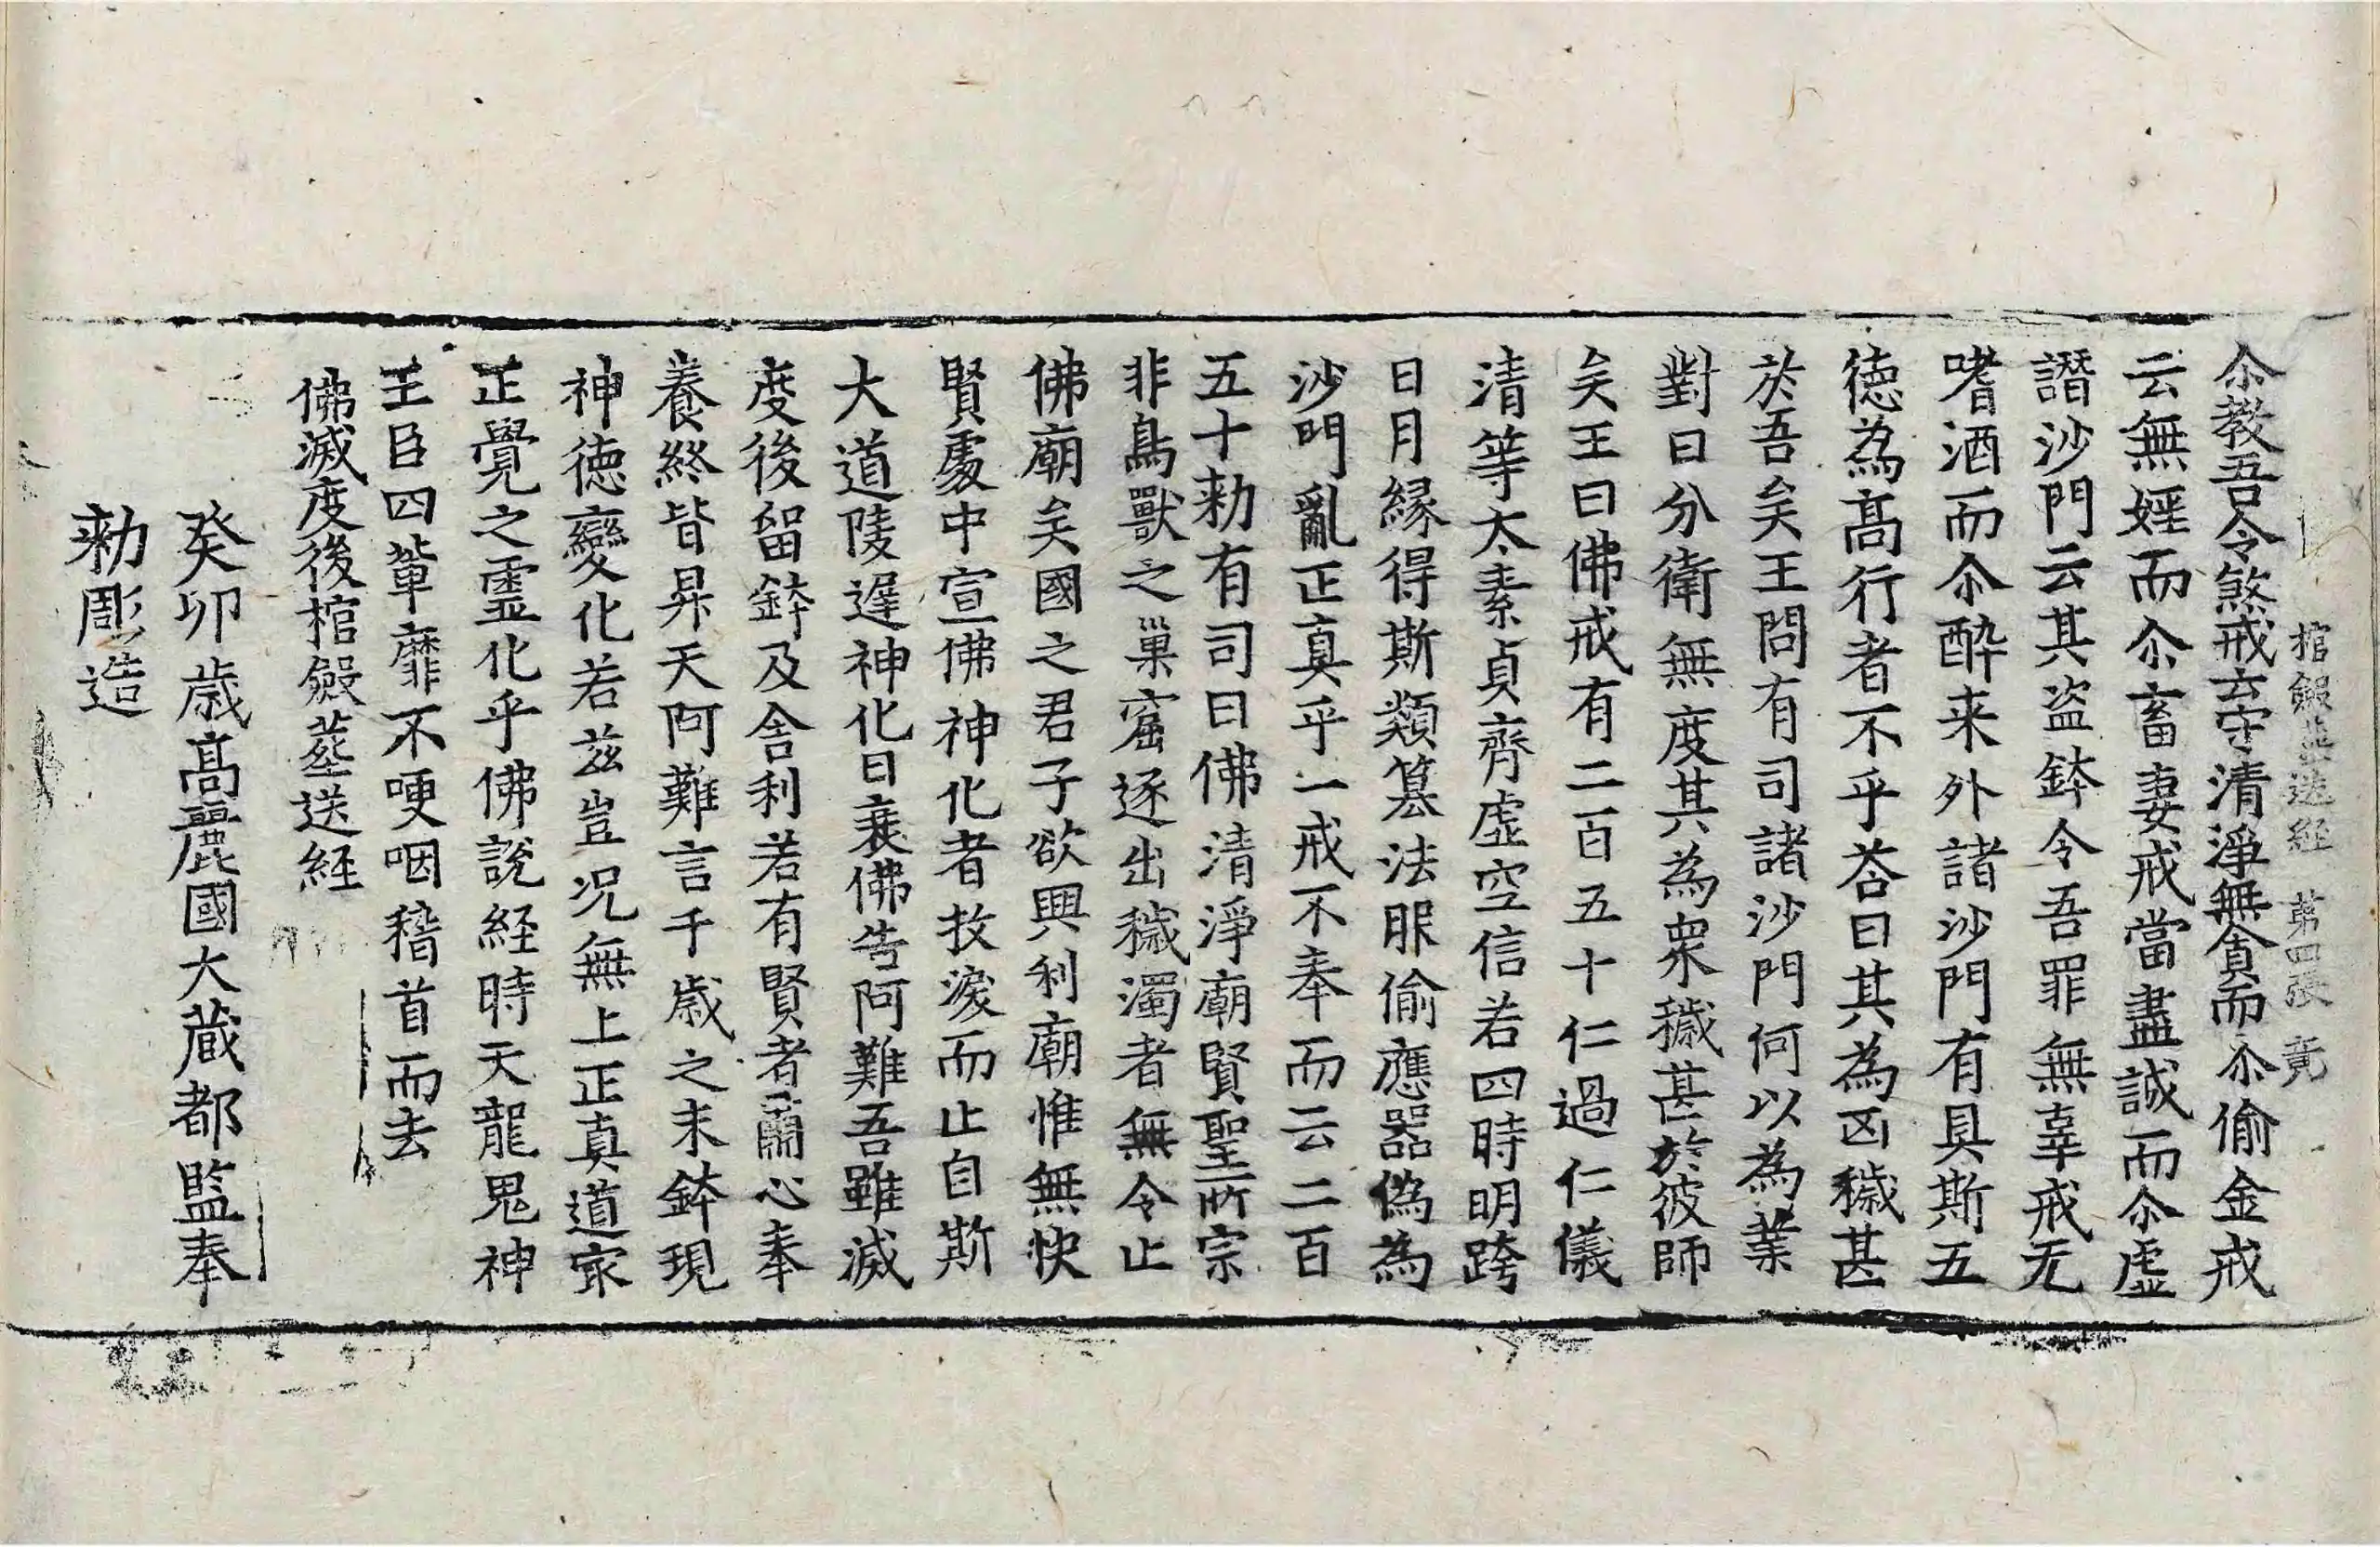 棺殮塟送経 第四張 竟
尒教吾令煞戒云守清淨無貪而尒偷金戒
云無婬而尒畜妻戒當盡誠而尒虛
譖沙門云其盗鉢令吾罪無辜戒无
嗜酒而尒酔来外諸沙門有具斯五
徳為髙行者不乎荅曰其為凶穢甚
於吾矣王問有司諸沙門何以為業
對曰分衛無度其為衆穢甚於彼師
矣王曰佛戒有二百五十仁過仁儀
清等太素貞齊虛空信若四時明踰
日月縁得斯類篡法服偷應器偽為
沙門亂正真乎一戒不奉而云二百
五十勑有司曰佛清淨廟賢聖所宗
非鳥獸之巢窟逐出穢濁者無令止
佛廟矣國之君子欲興利廟惟無快
賢䖏中宣佛神化者抆淚而止自斯
大道陵遅神化日衰佛告阿難吾雖滅
度後留鉢及舍利若有賢者肅心奉
養終皆昇天阿難言千歳之末鉢現
神徳變化若兹豈況無上正真道㝡
正覺之靈化乎佛說経時天龍鬼神
王臣四輩靡不哽咽稽首而去
佛滅度後棺殮塟送経
癸卯歳髙麗國大蔵都監奉
勑彫造